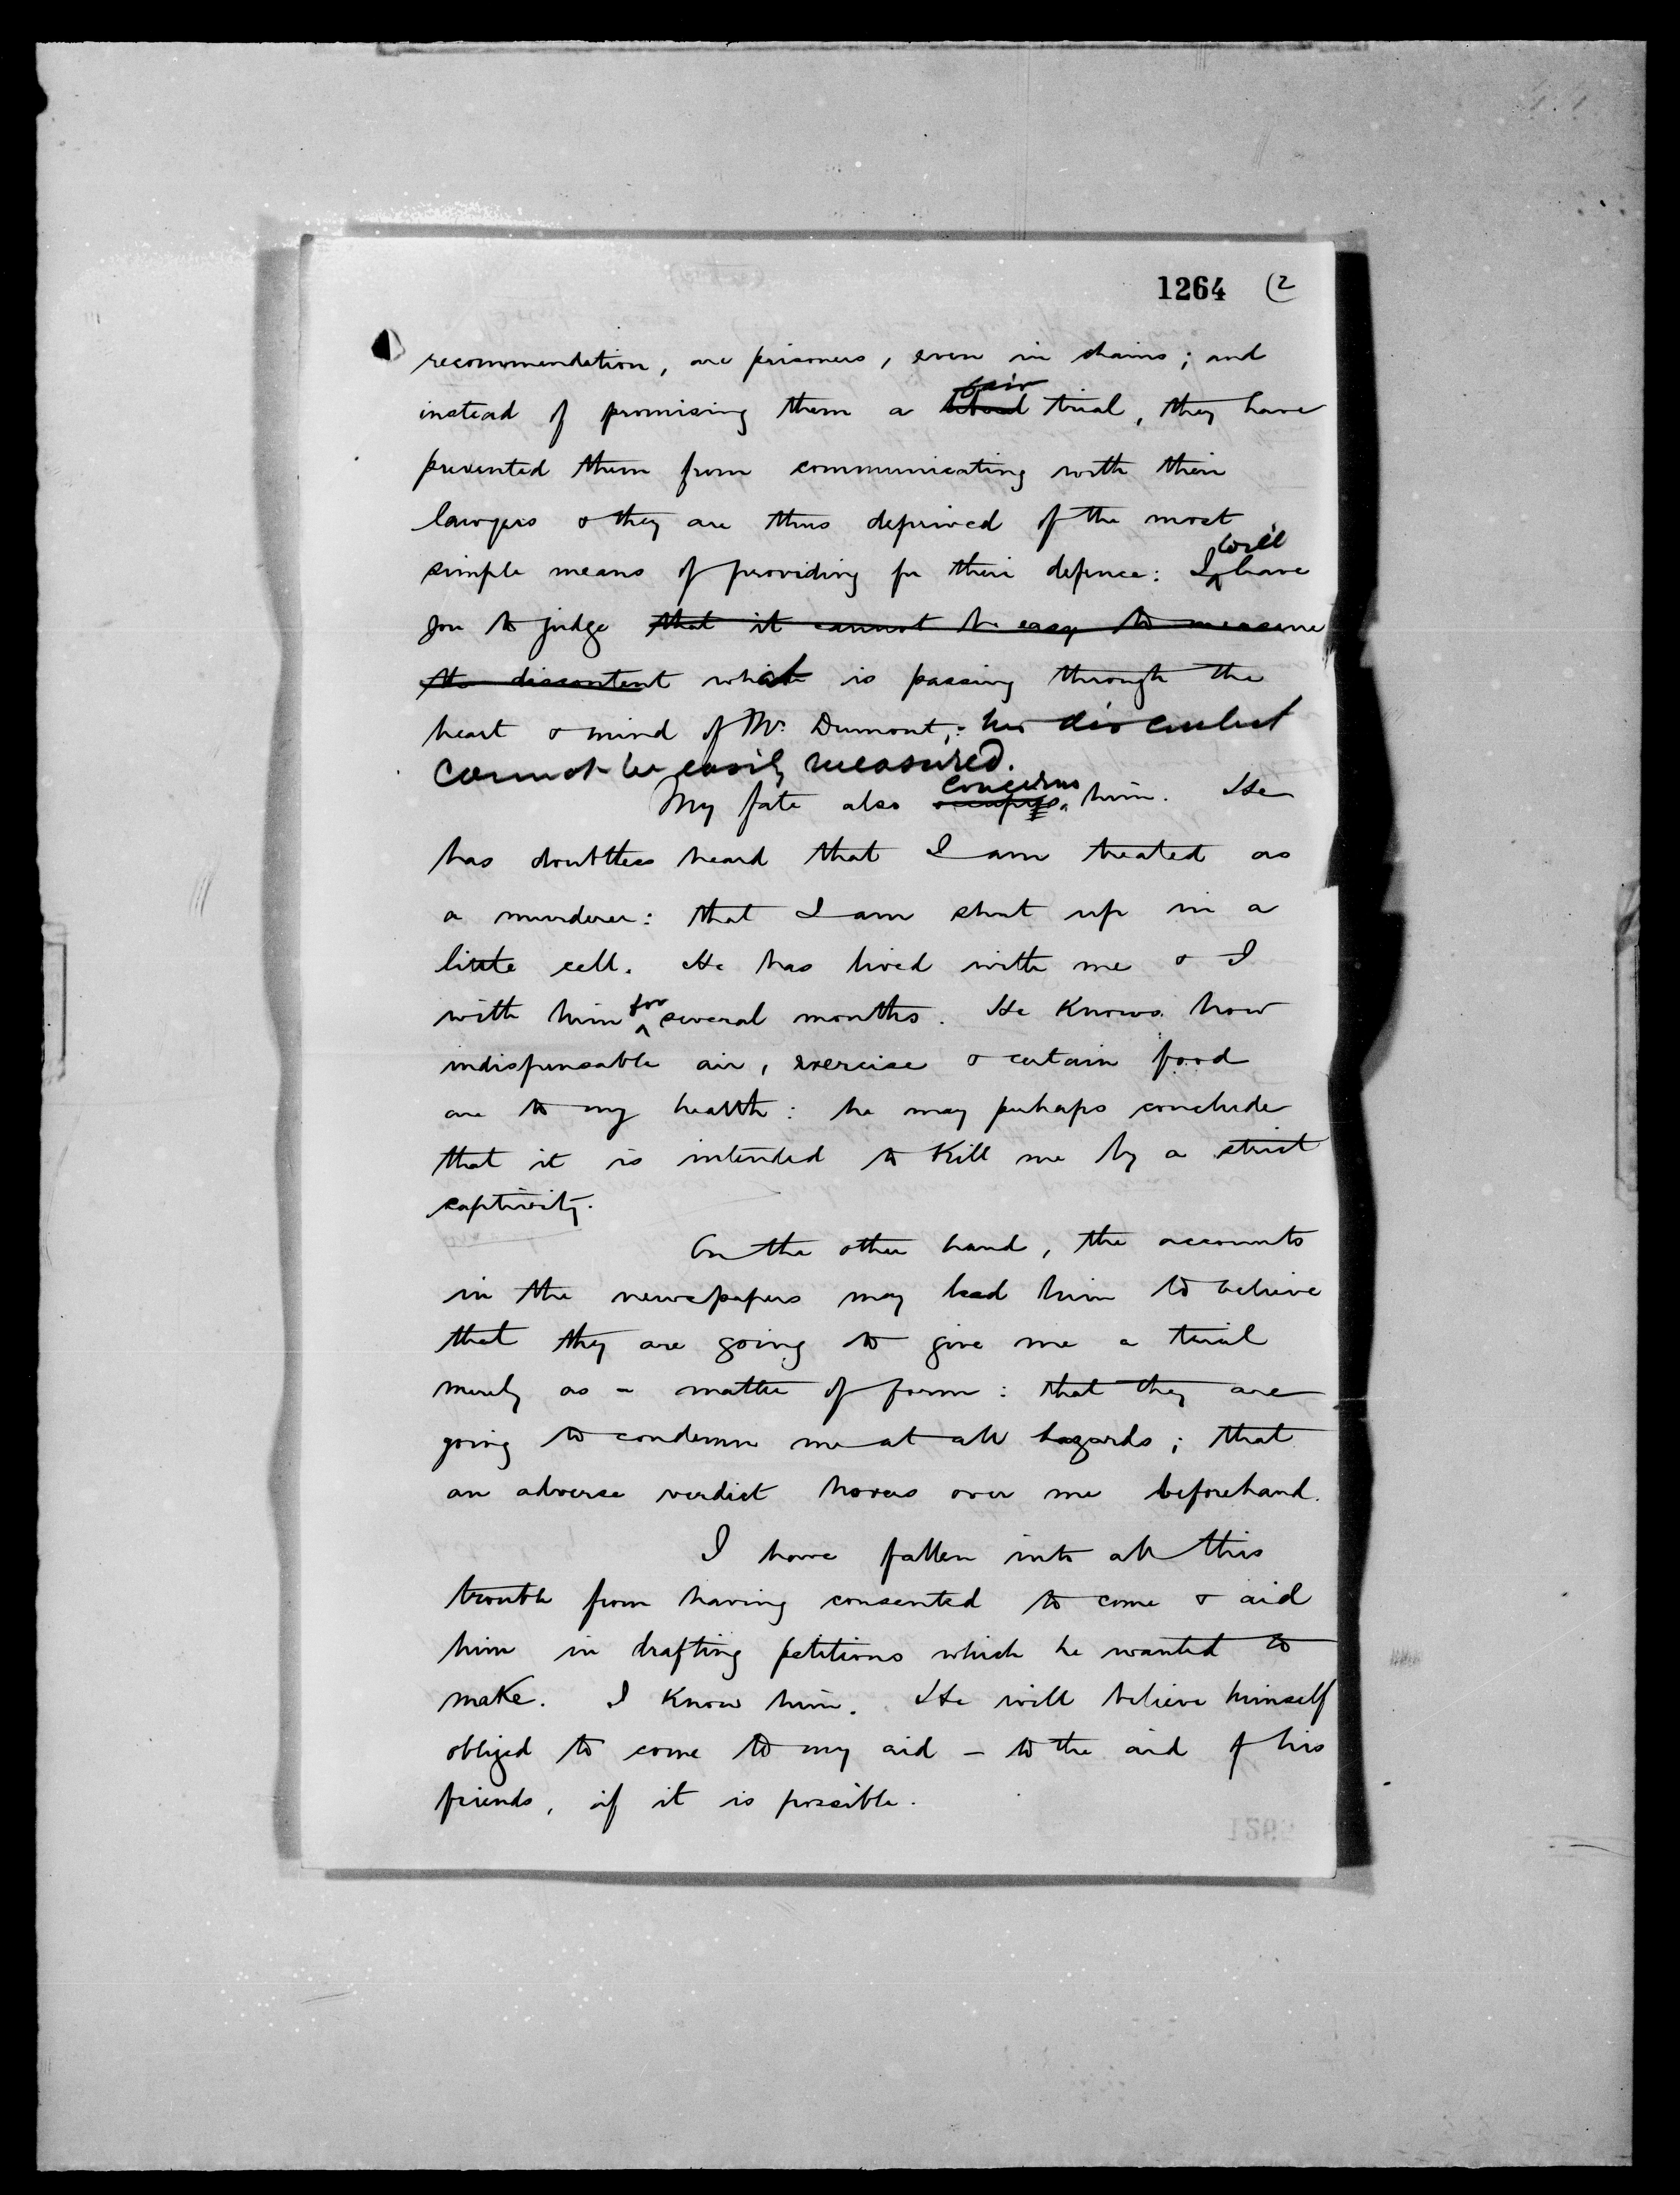 1264 (2
recommendation, are prisoners, even in chains; and
instead of promising them a fair trial, they have
prevented them from communicating with their
lawyers & they are thus deprived of the most
simple means of providing for their defence: I will leave
you to judge that it cannot be easy to measure
the discontent what is passing through the
heart & mind of Mr. Dumont; his discontent
cannot be easily measured.
My fate also occupies concerns him. He
has doubtless heard that I am treated as
a murderer: that I am shut up in a
little cell. He has lived with me & I
with him for several months. He knows how
indispensable air, exercise & certain food
are to my health: he may perhaps conclude
that it is intended to kill me by a strict
captivity.
On the other hand, the accounts
in the newspapers may lead him to believe
that they are going to give me a trial
merely as a matter of form: that they are
going to condemn me at all hazards; that
an adverse verdict hovers over me beforehand.
I have fallen into all this
trouble from having consented to come & aid
him in drafting petitions which he wanted to
make. I know him. He will believe himself
obliged to come to my aid – to the aid of his
friends, if it is possible.